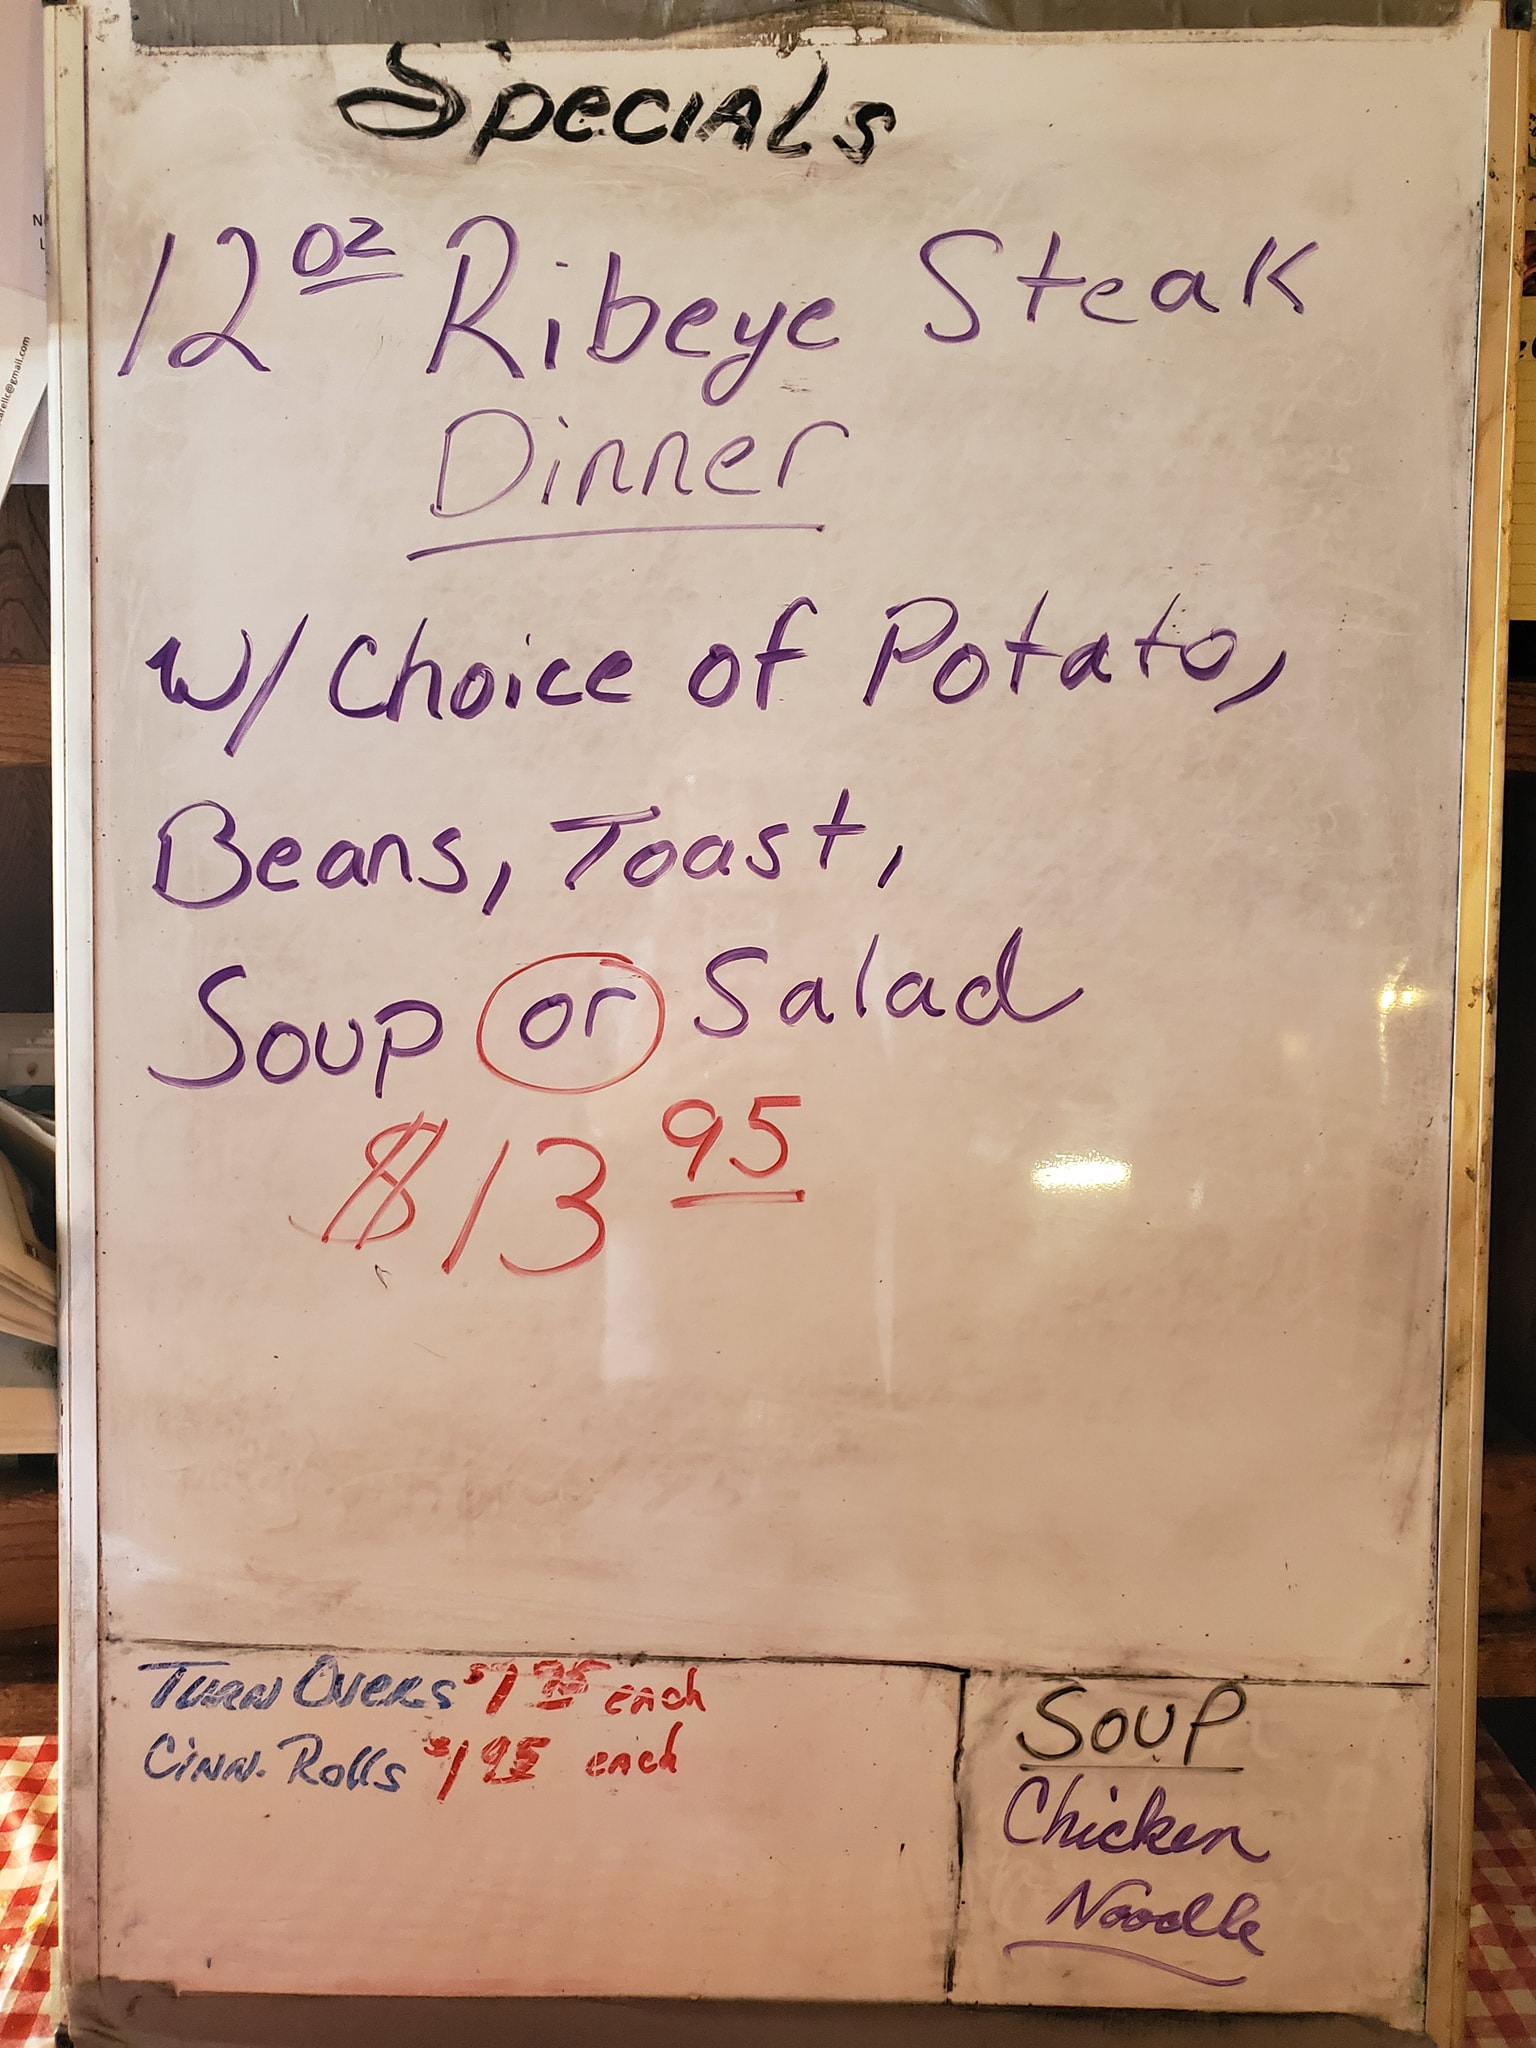 Specials
12 oz Ribeye Steak
Dinner
w/ Choice of Potato,
Beans, Toast,
Soup or Salad
$13 95
Turn Overs $1 each
Cinn. Rolls $1 95 each
Soup
Chicken
Noodle
arellc@gmail.com